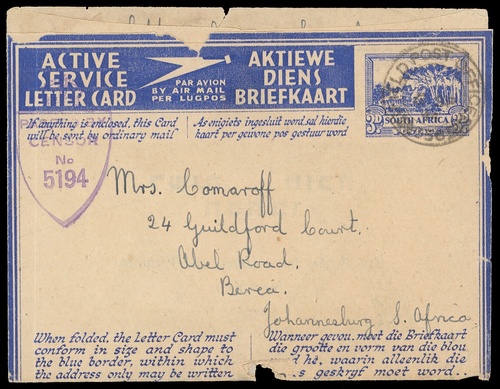 ACTIVE SERVICE LETTER CARD
PAR AVION
BY AIR MAIL
PER LUGPOS
AKTIEWE DIENS BRIEFKAART
SOUTH AFRICA
If anything is enclosed, this Card
will be sent by ordinary mail
As enigiets ingesluit word, sal hierdie
kaart per gewone pos gestuur word
CENSOR
No
5194
Mrs. Comaroff
24 Guildford Court.
Abel Road.
Berea.
Johannesburg S. Africa
When folded, the Letter Card must
conform in size and shape to
the blue border, within which
the address only may be written
Wanneer gevou, meet die Briefkaart
die grootte en vorm van die blou
hê, waarin alleenlik die
geskryf moet word.